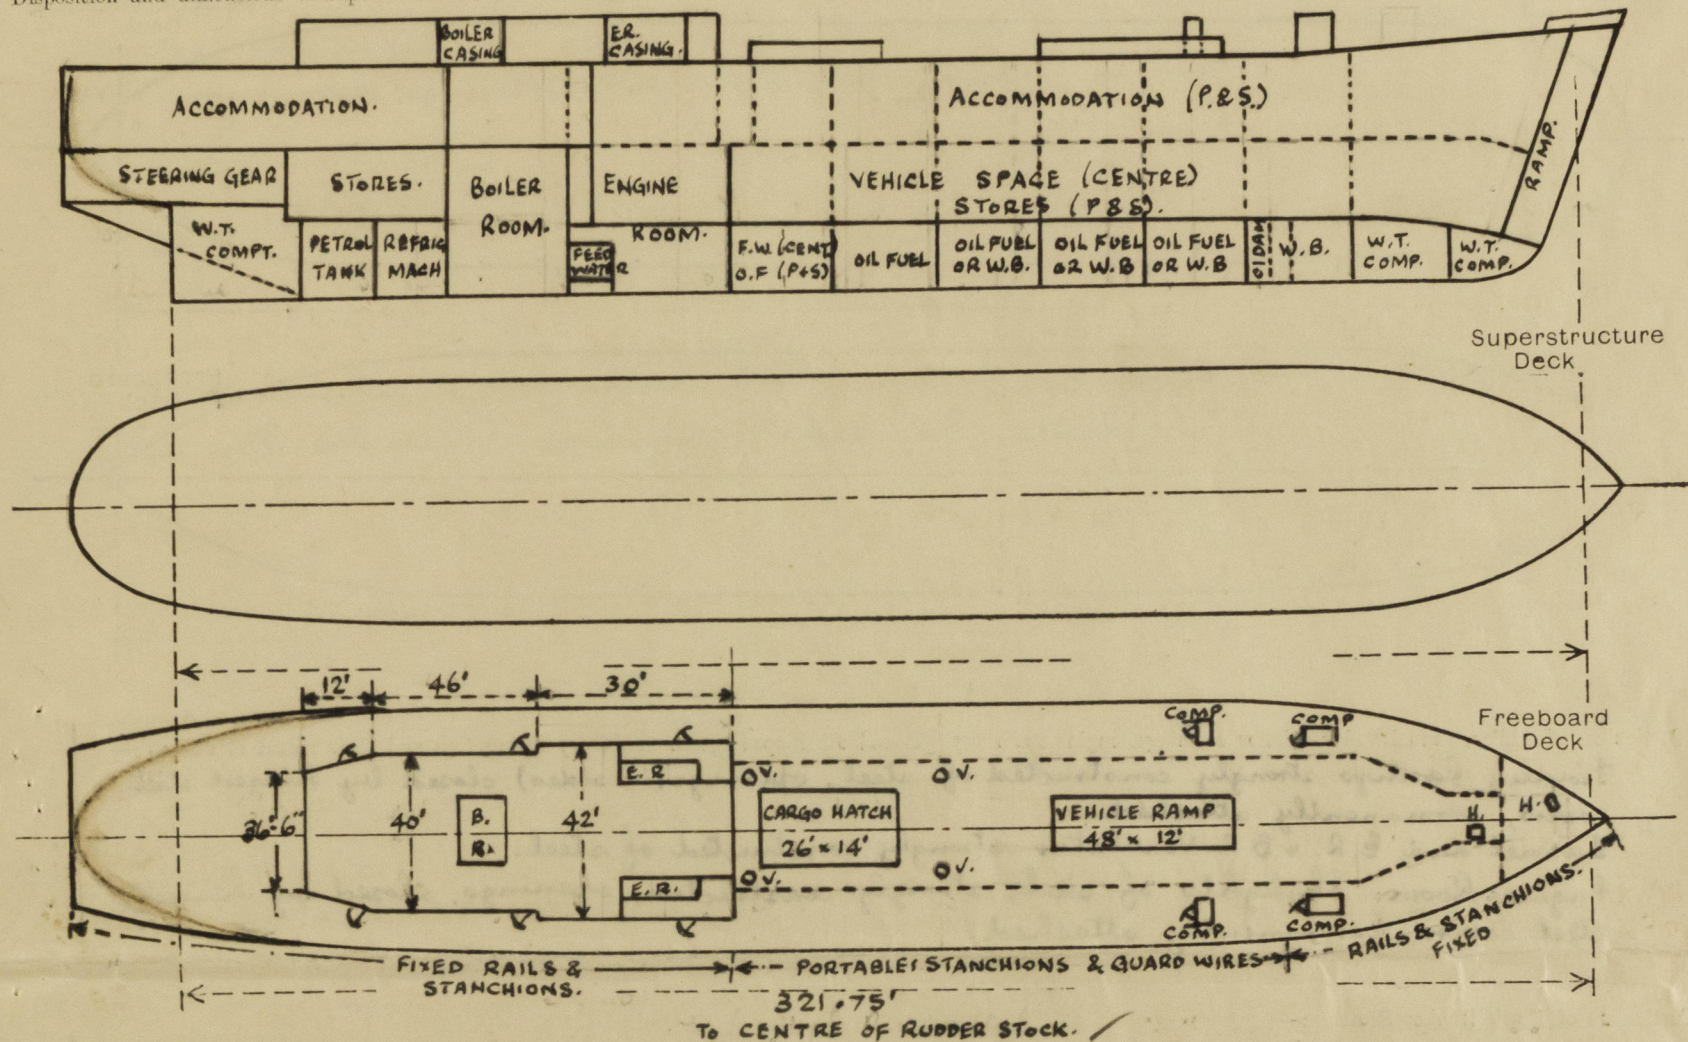 Disposition and
BOILER
CASING
E.R.
CASING.
ACCOMMODATION.
ACCOMMODATION (P.&S.)
RAMP.
STEERING GEAR
STORES.
BOILER
ROOM.
ENGINE
ROOM.
VEHICLE SPACE (CENTRE)
STORES (P&S).
W.T.
COMPT.
PETROL
TANK
REFRIG
MACH
FEED
WATER
F.W. (CENT)
O.F (P+S)
OIL FUEL
OIL FUEL
OR W.B.
OIL FUEL
OR W.B
OIL FUEL
OR W.B
W.B.
W.T.
COMP.
W.T.
COMP.
Superstructure
Deck
12'
46'
30'
COMP.
COMP
Freeboard
Deck
E.R
V.
V.
36'-6"
40'
B.
R.
42'
CARGO HATCH
26' x 14'
VEHICLE RAMP
48' x 12'
H.
H.
E.R.
V.
V.
COMP.
COMP.
FIXED RAILS &
STANCHIONS.
PORTABLE STANCHIONS & GUARD WIRES
RAILS & STANCHIONS.
FIXED
321.75'
TO CENTRE OF RUDDER STOCK.